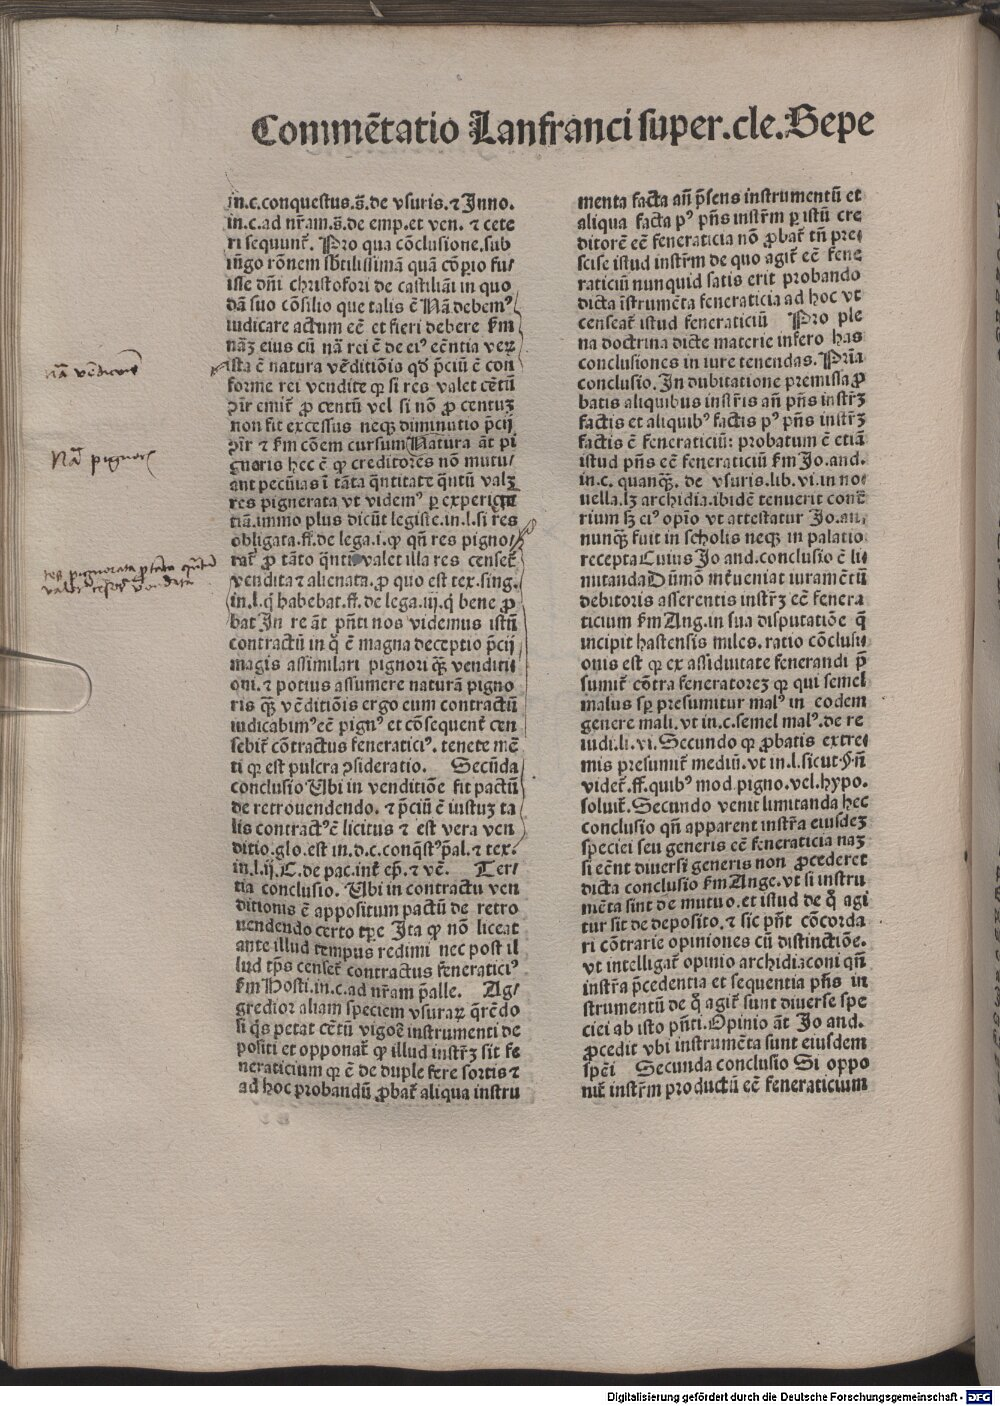 Commētatio Lanfranci super.cle.Sepe
in.c.conquestus.s̄.de vsuris.⁊ Inno.
in.c.ad nr̄am.s̄.de emp.et ven. ⁊ cete
ri sequunt᷑. Pro qua cōclusione.sub
iūgo rōnem sb̄tilissimā quā cōp̄rio fu/
isse dn̄i christofori de castiliāi in quo
dā suo cōsilio que talis ē Nā debemꝰ
iudicare actum eē et fieri debere s̄m
nāꝫ eius cū nā rei ē de eiꝰ eēntia veꝝ
ista ē natura vēditiōis qd̄ p̄ciū ē con
forme rei vendite ꝙ si res valet cētū
ꝯīr emit᷑ ꝓ centū vel si nō ꝓ centuꝫ
non fit excessus neqꝫ diminutio p̄cij
ꝯīr ⁊ s̄m cōem cursum Natura āt pi
gnoris hec ē ꝙ creditores nō mutu/
ant pecūias ī tāta q̄ntitate q̄ntū valꝫ
res pignerata vt videmꝰ ꝑ experiētie
tiā.immo plus dicūt legiste.in.l.si res
obligata.ff.de lega.i.ꝙ qn̄ res pigno/
rat᷑ ꝓ tāto q̄nti valet illa res censet᷑
vendita ⁊ alienata.ꝓ quo est tex.sing.
in.l.q̄ habebat.ff.de lega.iij.q̄ bene ꝓ
bat In re āt pn̄ti nos videmus istū
contractū in q̄ ē magna deceptio p̄cij
magis assimilari pignori qꝫ̄ venditi
oni.⁊ potius assumere naturā pigno
ris qꝫ̄ vēditiōis ergo eum contractū
iudicabimꝰ eē pignꝰ et cōsequent᷑ cen
sebit᷑ cōtractus feneraticiꝰ. tenete mē
ti qꝛ est pulcra ꝯsideratio. Secūda
conclusio Vbi in venditiōe fit pactū
de retrouendendo. ⁊ p̄ciū ē iustuꝫ ta
lis contractꝰ ē licitus ⁊ est vera ven
ditio.glo.est in.d.c.conq̄stꝰ p̄al.⁊ tex.
in.l.ij.C.de pac.int᷑ ep̄.⁊ vē. Ter/
tia conclusio. Vbi in contractu ven
ditionis ē appositum pactū de retro
uendendo certo tp̄e Ita ꝙ nō liceat
ante illud tempus redimi nec post il
lud tp̄s censet᷑ contractus feneraticiꝰ
s̄m Hosti.in.c.ad nr̄am p̄alle. Ag/
gredior aliam speciem vsuraꝝ q̄rēdo
si q̄s petat cētū vigoē instrumenti de
positi et opponat᷑ ꝙ illud instr̄ꝫ sit fe
neraticium qꝛ ē de duple fere sortis ⁊
ad hoc probandū ꝓbat᷑ aliqua instru
menta facta añ p̄sens instrumentū et
aliqua facta pꝰ pn̄s instr̄m ꝑ istū cre
ditorē eē feneraticia nō ꝓbat᷑ tn̄ pre/
scise istud instr̄m de quo agit᷑ eē fene
raticiū nunquid satis erit probando
dicta īstrumēta feneraticia ad hoc vt
censeat᷑ istud feneraticiū Pro ple
na doctrina dicte materie infero has
conclusiones in iure tenendas. Pr̄ia
conclusio. In dubitatione premissa ꝓ
batis aliquibus instr̄is añ pn̄s instr̄ꝫ
factis et aliquibꝰ factis pꝰ pn̄s instr̄ꝫ
factis ē feneraticiū: probatum ē etiā
istud pn̄s eē feneraticiū s̄m Jo.and.
in.c. quanqꝫ̄. de vsuris.lib.vi.in no/
uella.lꝫ archidia.ibidē tenuerit cont᷑
rium sꝫ eiꝰ opīo vt attestatur Jo.an.
nunqꝫ̄ fuit in scholis neqꝫ in palatio
recepta Cuius Jo and.conclusio ē li/
mitanda Dūmō nō īteueniat iuramētū
debitoris asserentis instr̄ꝫ eē fenera
ticium s̄m Ang.in sua disputatiōe q̄
incipit hastensis miles. ratio cōclusi
onis est ꝙ ex assiduitate fenerandi p̄
sumit᷑ cōtra feneratoreꝫ qꝛ qui semel
malus sꝑ presumitur malꝰ in eodem
genere mali. vt in.c.semel malꝰ.de re
iudi.li.vi. Secundo qꝛ ꝓbatis extre/
mis presumit᷑ mediū.vt in.l.sicut.§.n̄
videt᷑.ff.quibꝰ mod.pigno.vel.hypo.
soluit᷑. Secundo venit limitanda hec
conclusio qn̄ apparent instr̄a eiusdeꝫ
speciei seu generis eē feneraticia naꝫ
si eēnt diuersi generis non ꝓcederet
dicta conclusio s̄m Ange. vt si instru
mēta sint de mutuo.et istud de q̄ agi
tur sit de deposito.⁊ sic pn̄t cōcorda
ri cōtrarie opiniones cū distinctiōe.
vt intelligat᷑ opinio archidiaconi qn̄
instr̄a p̄cedentia et sequentia pn̄s in
strumentū de q̄ agit᷑ sunt diuerse spe
ciei ab isto pn̄ti. Opinio āt Jo and.
ꝓcedit vbi instrumēta sunt eiusdem
spēi Secunda conclusio Si oppo
nit᷑ instr̄m productū eē feneraticium
Nā vēdicionis
Nā pignoris
Digitalisierung gefördert durch die Deutsche Forschungsgemeinschaft - DFG